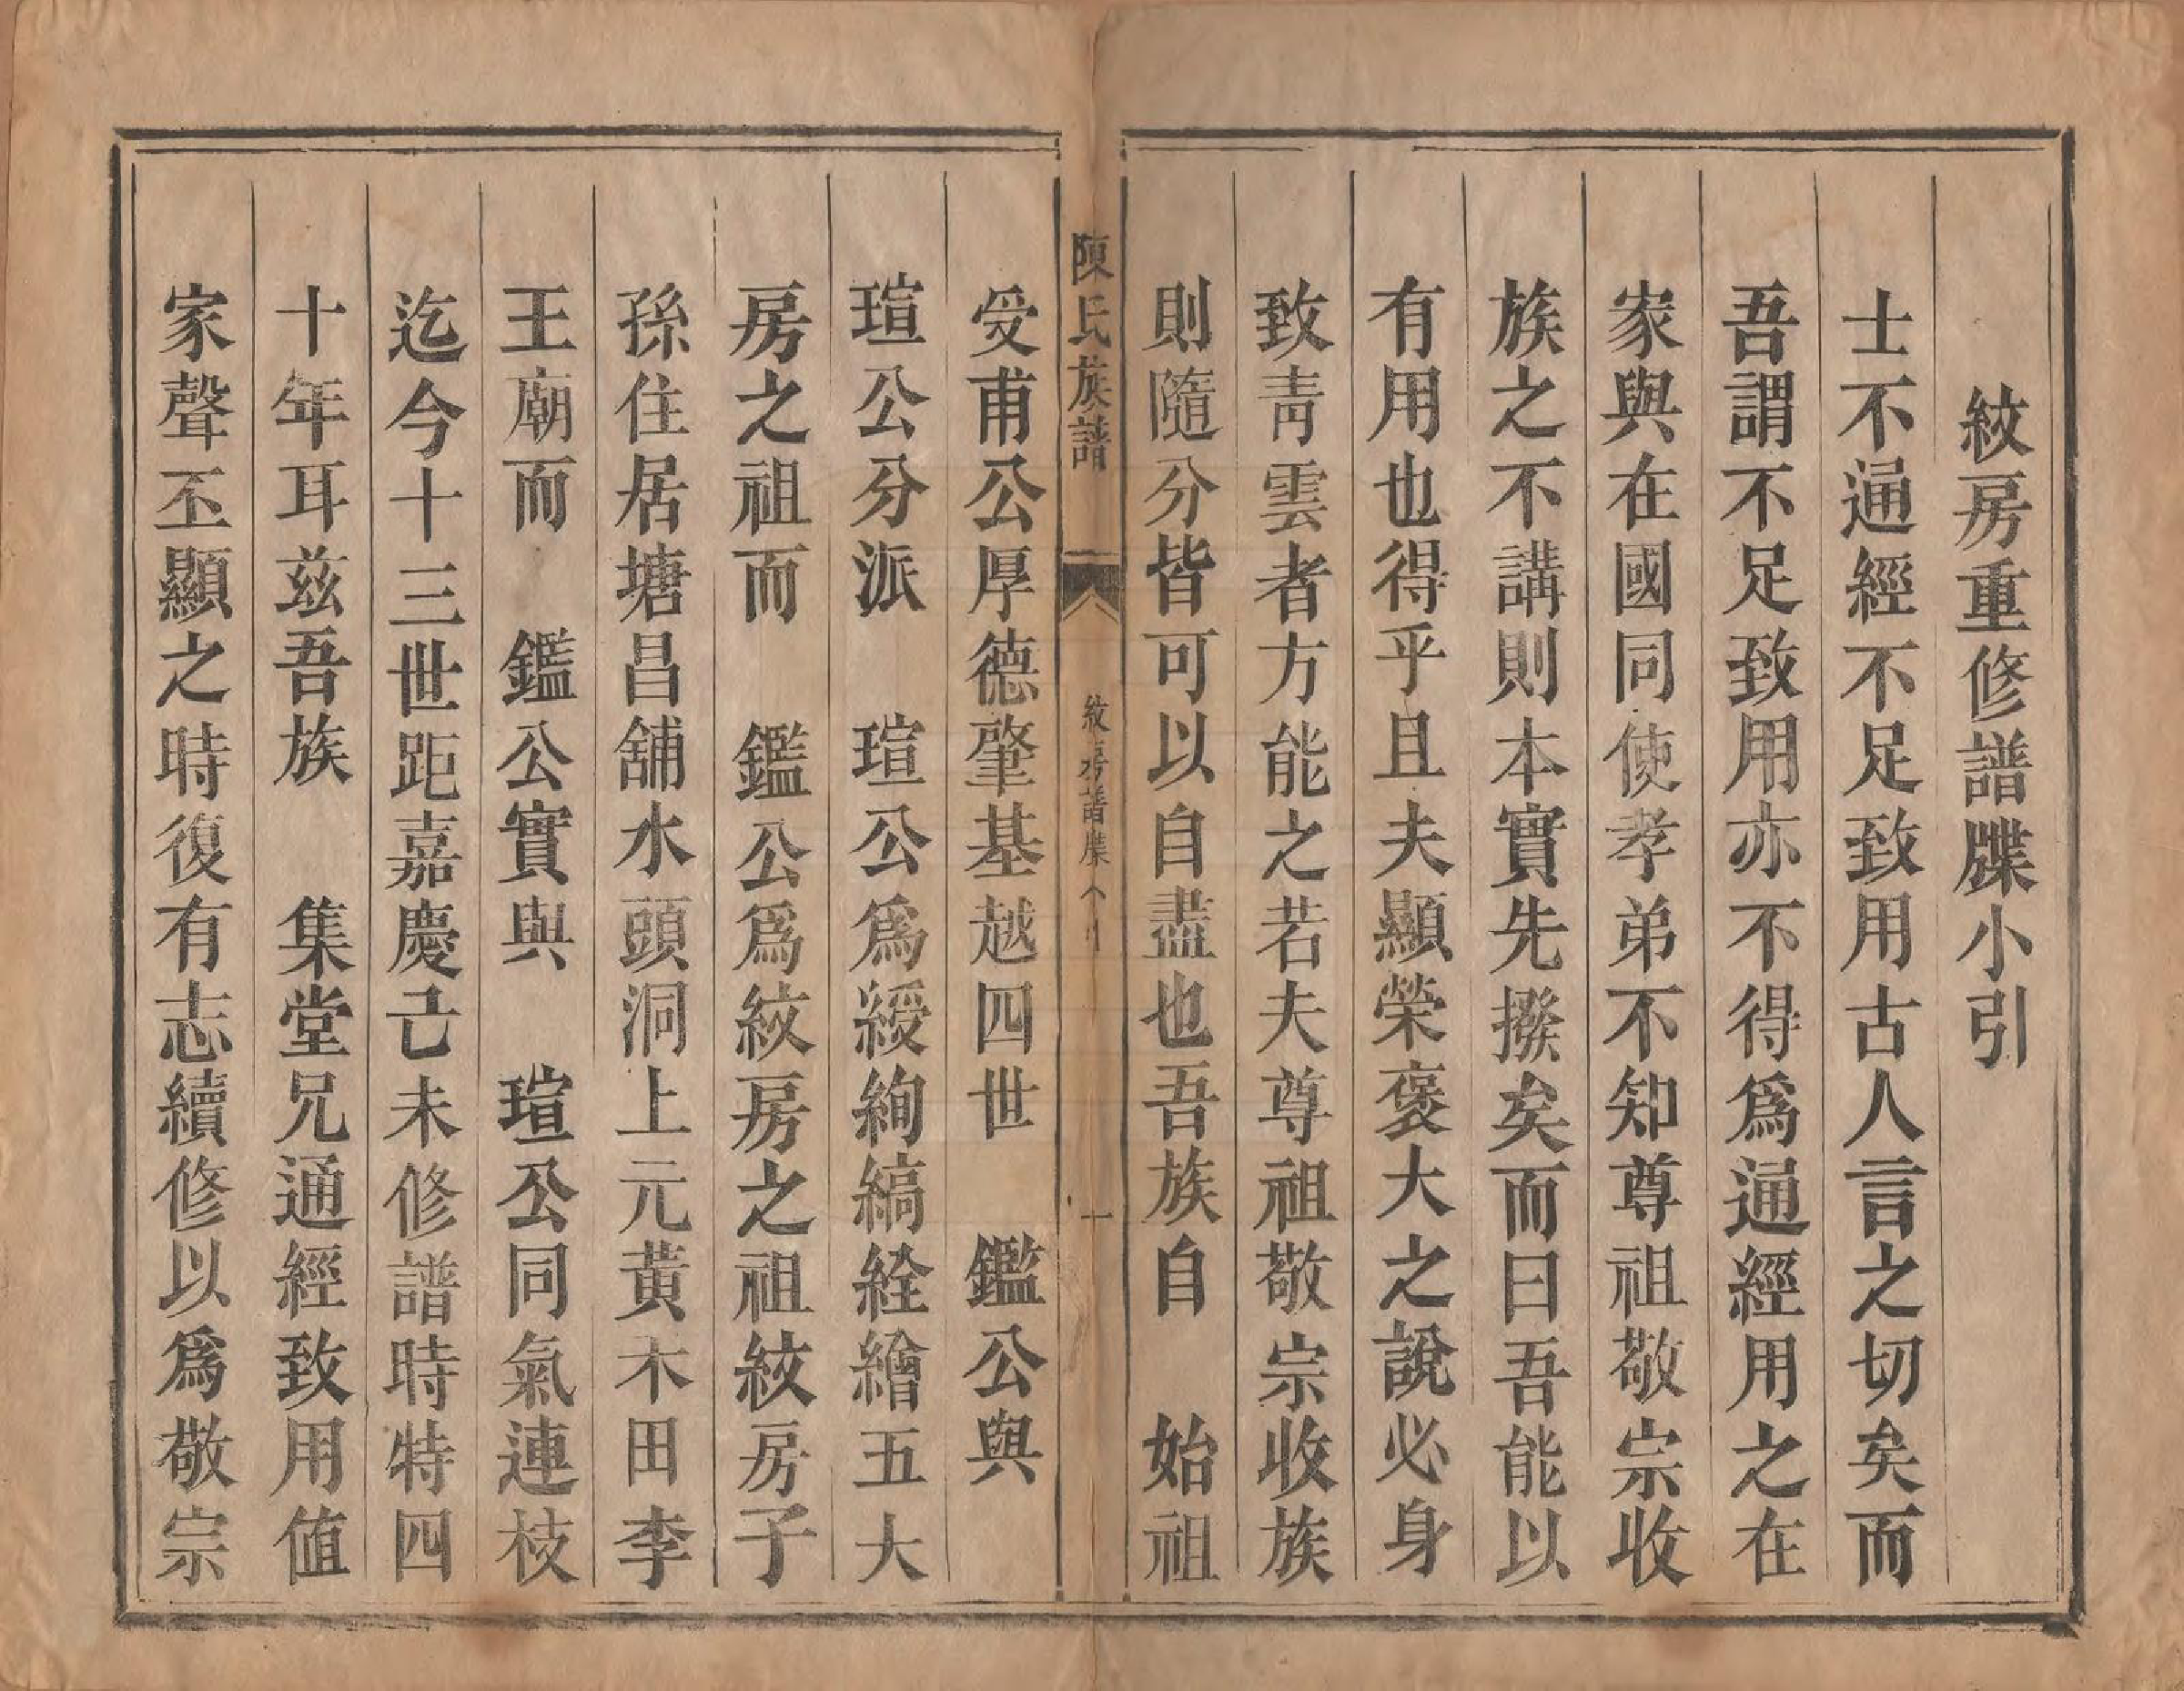 紋房重修譜牒小引
士不通經不足致用古人言之切矣而
吾謂不足致用亦不得爲通經用之在
家與在國同使孝弟不知尊祖敬宗收
族之不講則本實先撥矣而曰吾能以
有用也得乎且夫顯榮褒大之說必身
致靑雲者方能之若夫尊祖敬宗收族
則隨分皆可以自盡也吾族自　始祖
陳氏族譜　紋房譜牒　一
受甫公厚德肇基越四世　鑑公與
瑄公分派　瑄公爲綬絢縞絟繪五大
房之祖而　鑑公爲紋房之祖紋房子
孫住居塘昌舖水頭洞上元黃木田李
王廟而　鑑公實與　瑄公同氣連枝
迄今十三世距嘉慶己未修譜時特四
十年耳兹吾族　集堂兄通經致用值
家聲丕顯之時復有志續修以爲敬宗